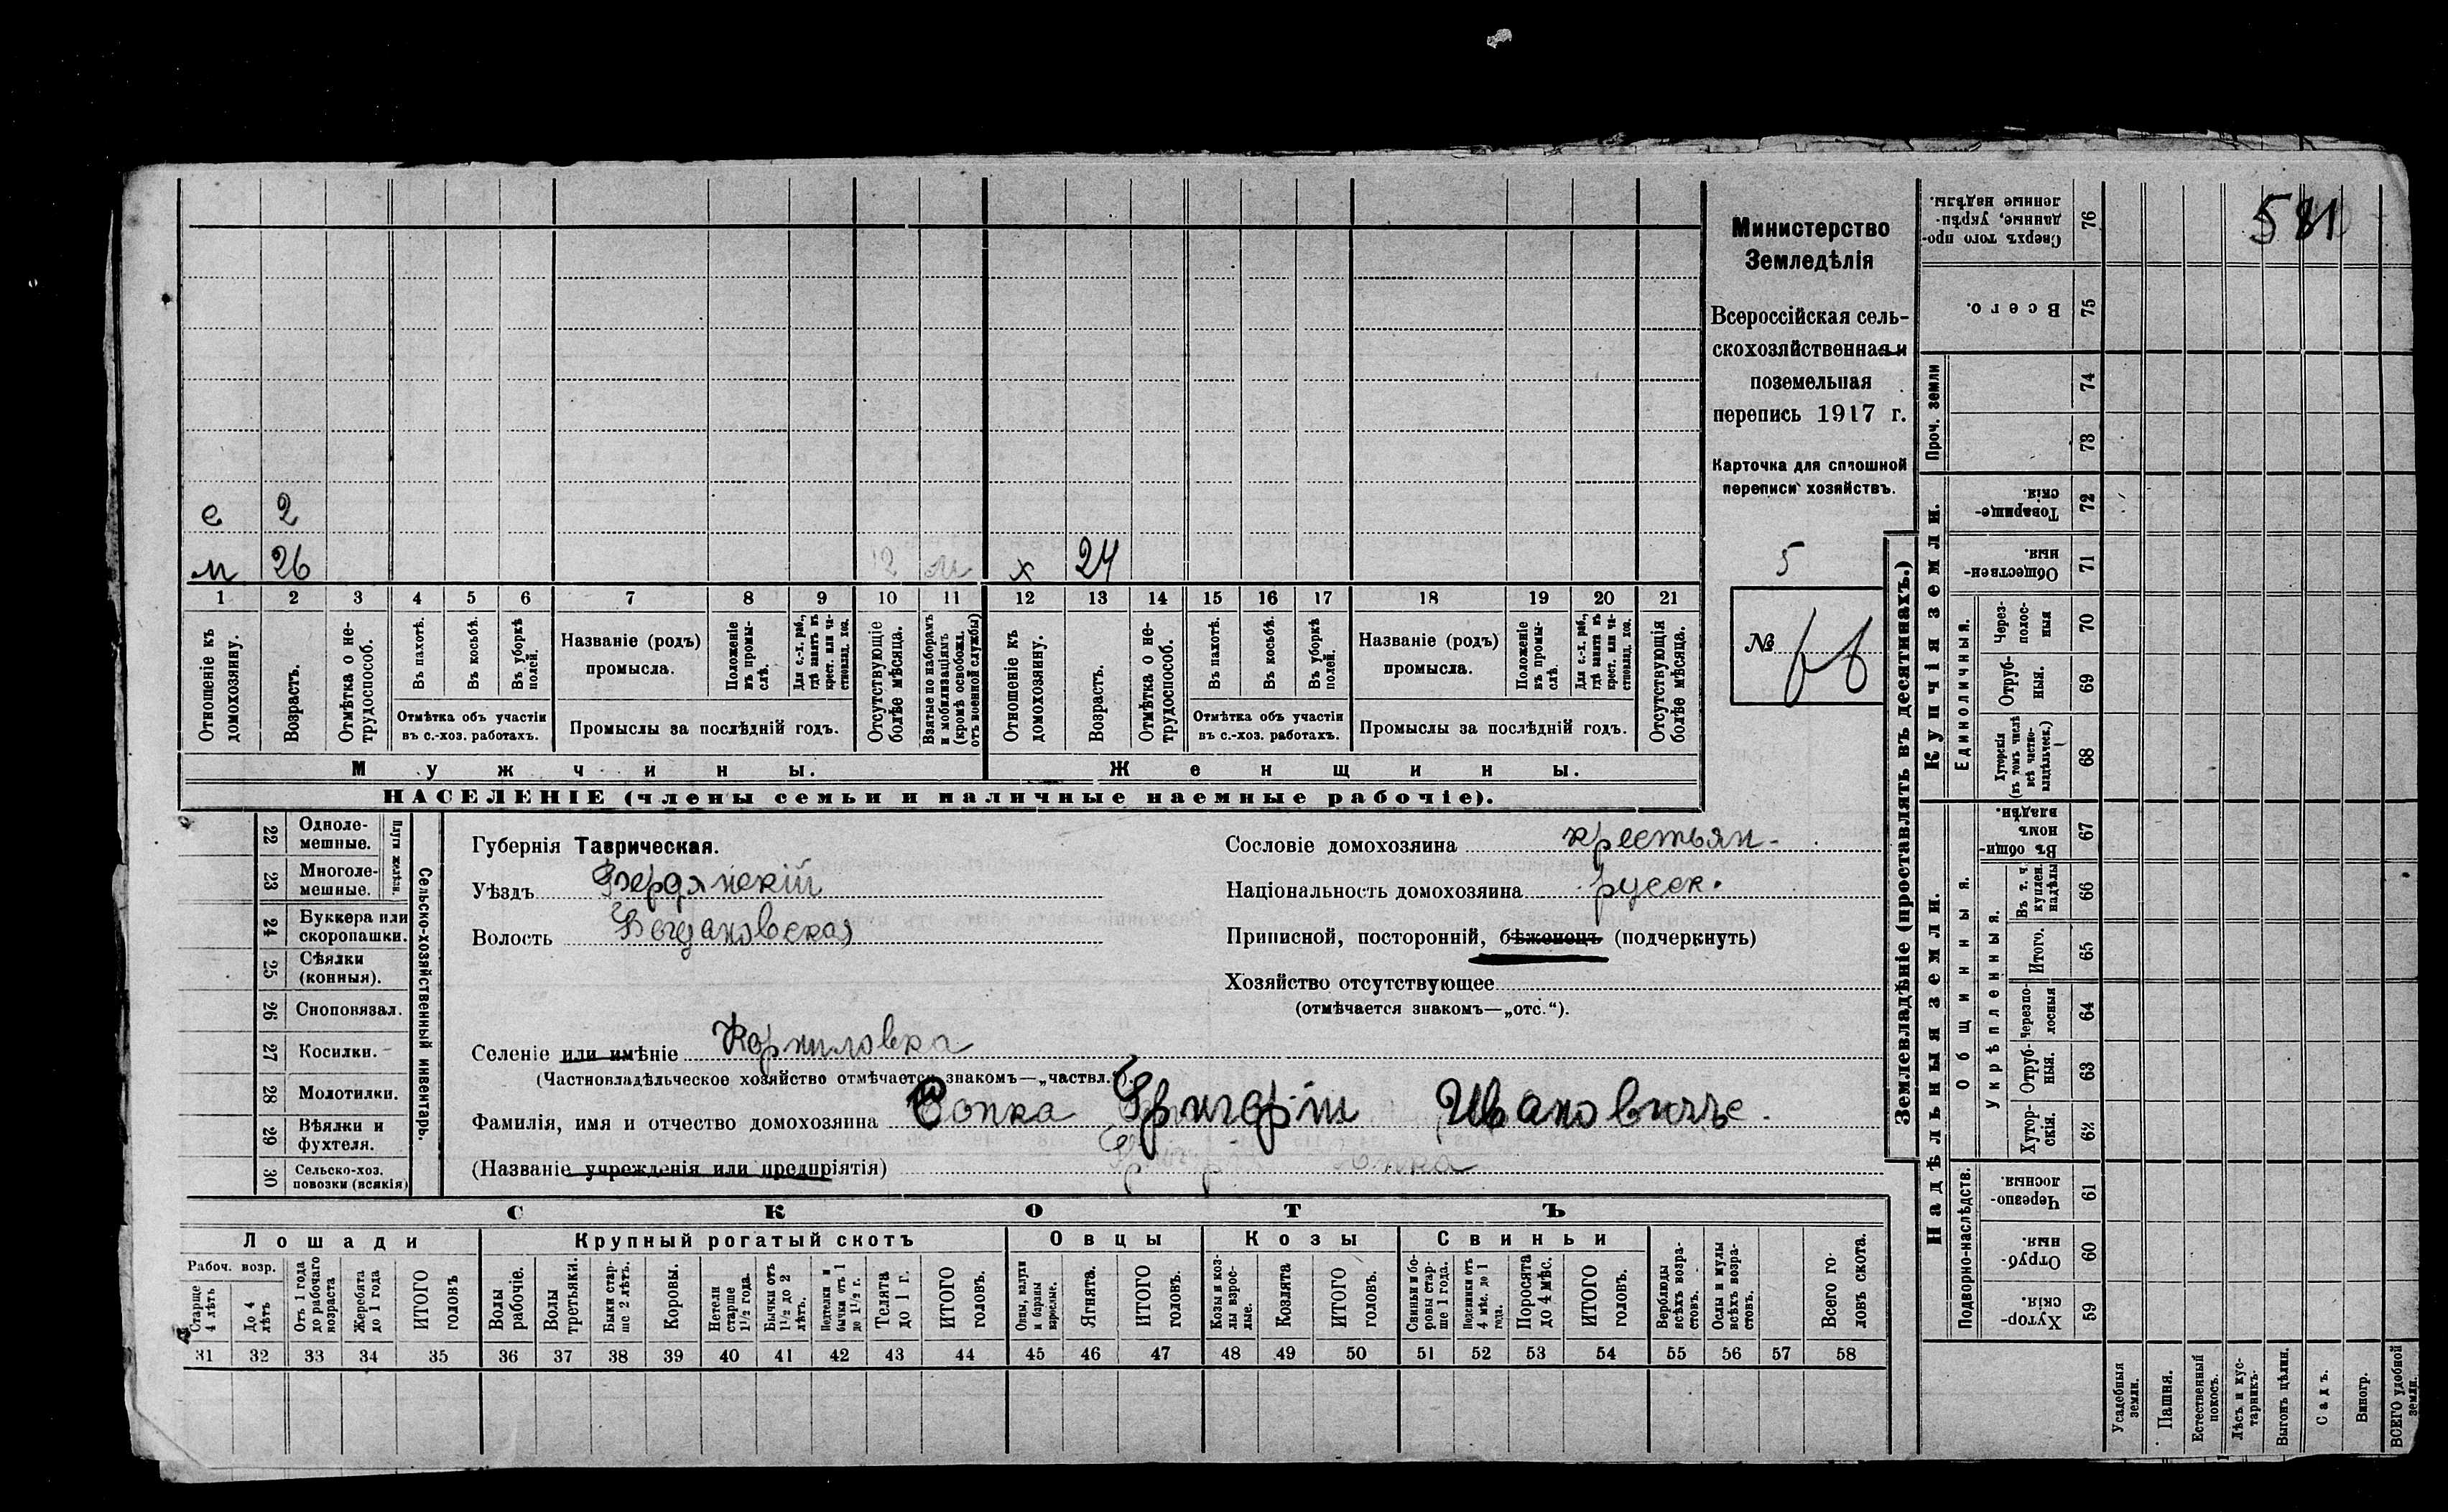 581
Министерство
Земледѣлія
Всероссійская сель-
скохозяйственная и
поземельная
перепись 1917 г.
Карточка для сплошной
переписи хозяйствъ.
5
№
е 2
м 26 12 м х 24
1 2 3 4 5 6 7 8 9 10 11 12 13 14 15 16 17 18 19 20 21
Отношеніе къ домохозяину.
Возрастъ.
Отмѣтка о не-трудоспособ.
Въ пахотѣ.
Въ косьбѣ.
Въ уборкѣ полей.
Отмѣтка объ участіи
въ с.-хоз. работахъ.
Названіе (родъ)
промысла.
Положеніе въ промы-слѣ.
Для с.-х. раб., гдѣ занятъ въ крест. или ча-стновлад. хоз.
Промыслы за послѣдній годъ.
Отсутствующіе болѣе мѣсяца.
Взятые по наборамъ и мобилизаціямъ (кромѣ освобожд. отъ военной службы)
Отношеніе къ домохозяину.
Возрастъ.
Отмѣтка о не-трудоспособ.
Въ пахотѣ.
Въ косьбѣ.
Въ уборкѣ полей.
Отмѣтка объ участіи
въ с.-хоз. работахъ.
Названіе (родъ)
промысла.
Положеніе въ промы-слѣ.
Для с.-х. раб., гдѣ занятъ въ крест. или ча-стновлад. хоз.
Промыслы за послѣдній годъ.
Отсутствующія болѣе мѣсяца.
Мужчины. Женщины.
НАСЕЛЕНІЕ (члены семьи и наличные наемные рабочіе).
Сельско-хозяйственный инвентарь.
Плуги желѣзн.
22 Одноле-мешные.
23 Многоле-мешные.
24 Буккера или скоропашки.
25 Сѣялки (конныя).
26 Сноповязал.
27 Косилки.
28 Молотилки.
29 Вѣялки и фухтеля.
30 Сельско-хоз. повозки (всякія)
Губернія Таврическая.
Уѣздъ Бердянскій
Волость Богдановская
Селеніе или имѣніе Корниловка
(Частновладѣльческое хозяйство отмѣчается знакомъ—„частвл.“).
Фамилія, имя и отчество домохозяина Сопка Григорій Ивановичъ.
(Названіе учрежденія или предпріятія)
Сословіе домохозяина крестьян.
Національность домохозяина русск.
Приписной, посторонній, бѣженецъ (подчеркнуть)
Хозяйство отсутствующее
(отмѣчается знакомъ—„отс.“).
СКОТЪ
Лошади Крупный рогатый скотъ Овцы Козы Свиньи
Рабоч. возр.
Старше 4 лѣтъ
До 4 лѣтъ
Отъ 1 года до рабочаго возраста
Жеребята до 1 года
ИТОГО головъ
Волы рабочіе.
Волы третьяки.
Быки стар-ше 2 лѣтъ.
Коровы.
Нетели старше 1½ года.
Бычки отъ 1½ до 2 лѣтъ.
Подтелки и бычки отъ 1 до 1½ г.
Телята до 1 г.
ИТОГО головъ.
Овцы, валухи и бараны взрослые.
Ягнята.
ИТОГО головъ.
Козы и коз-лы взрос-лые.
Козлята
ИТОГО головъ.
Свиньи и бо-ровы стар-ше 1 года.
Подсвинки отъ 4 мѣс. до 1 года.
Поросята до 4 мѣс.
ИТОГО головъ.
Верблюды всѣхъ возра-стовъ.
Ослы и мулы всѣхъ возра-стовъ.
Всего го-ловъ скота.
31 32 33 34 35 36 37 38 39 40 41 42 43 44 45 46 47 48 49 50 51 52 53 54 55 56 57 58
Землевладѣніе (проставлять въ десятинахъ.)
Купчія земли.
Надѣльныя земли.
Проч. земли
Сверхъ того про-данные, укрѣп-ленные надѣлы. 76
Всего. 75
74
73
Товарище-скія. 72
Обществен-ныя. 71
Единоличныя.
Через-полос-ныя 70
Отруб-ныя. 69
Хуторскія (въ томъ числѣ всѣ частно-владѣльческ.) 68
Общинныя.
Въ общи-номъ владѣн. 67
Укрѣпленныя.
Въ т. ч. куплен. надѣлы 66
Итого. 65
Черезпо-лосныя 64
Отруб-ныя. 63
Хутор-скія. 62
Подворно-наслѣдств.
Черезпо-лосныя. 61
Отруб-ныя. 60
Хутор-скія. 59
Усадебныя земли.
Пашня.
Естественный покосъ.
Лѣсъ и кус-тарникъ.
Выгонъ цѣлин.
Садъ.
Виногр.
ВСЕГО удобной земли.